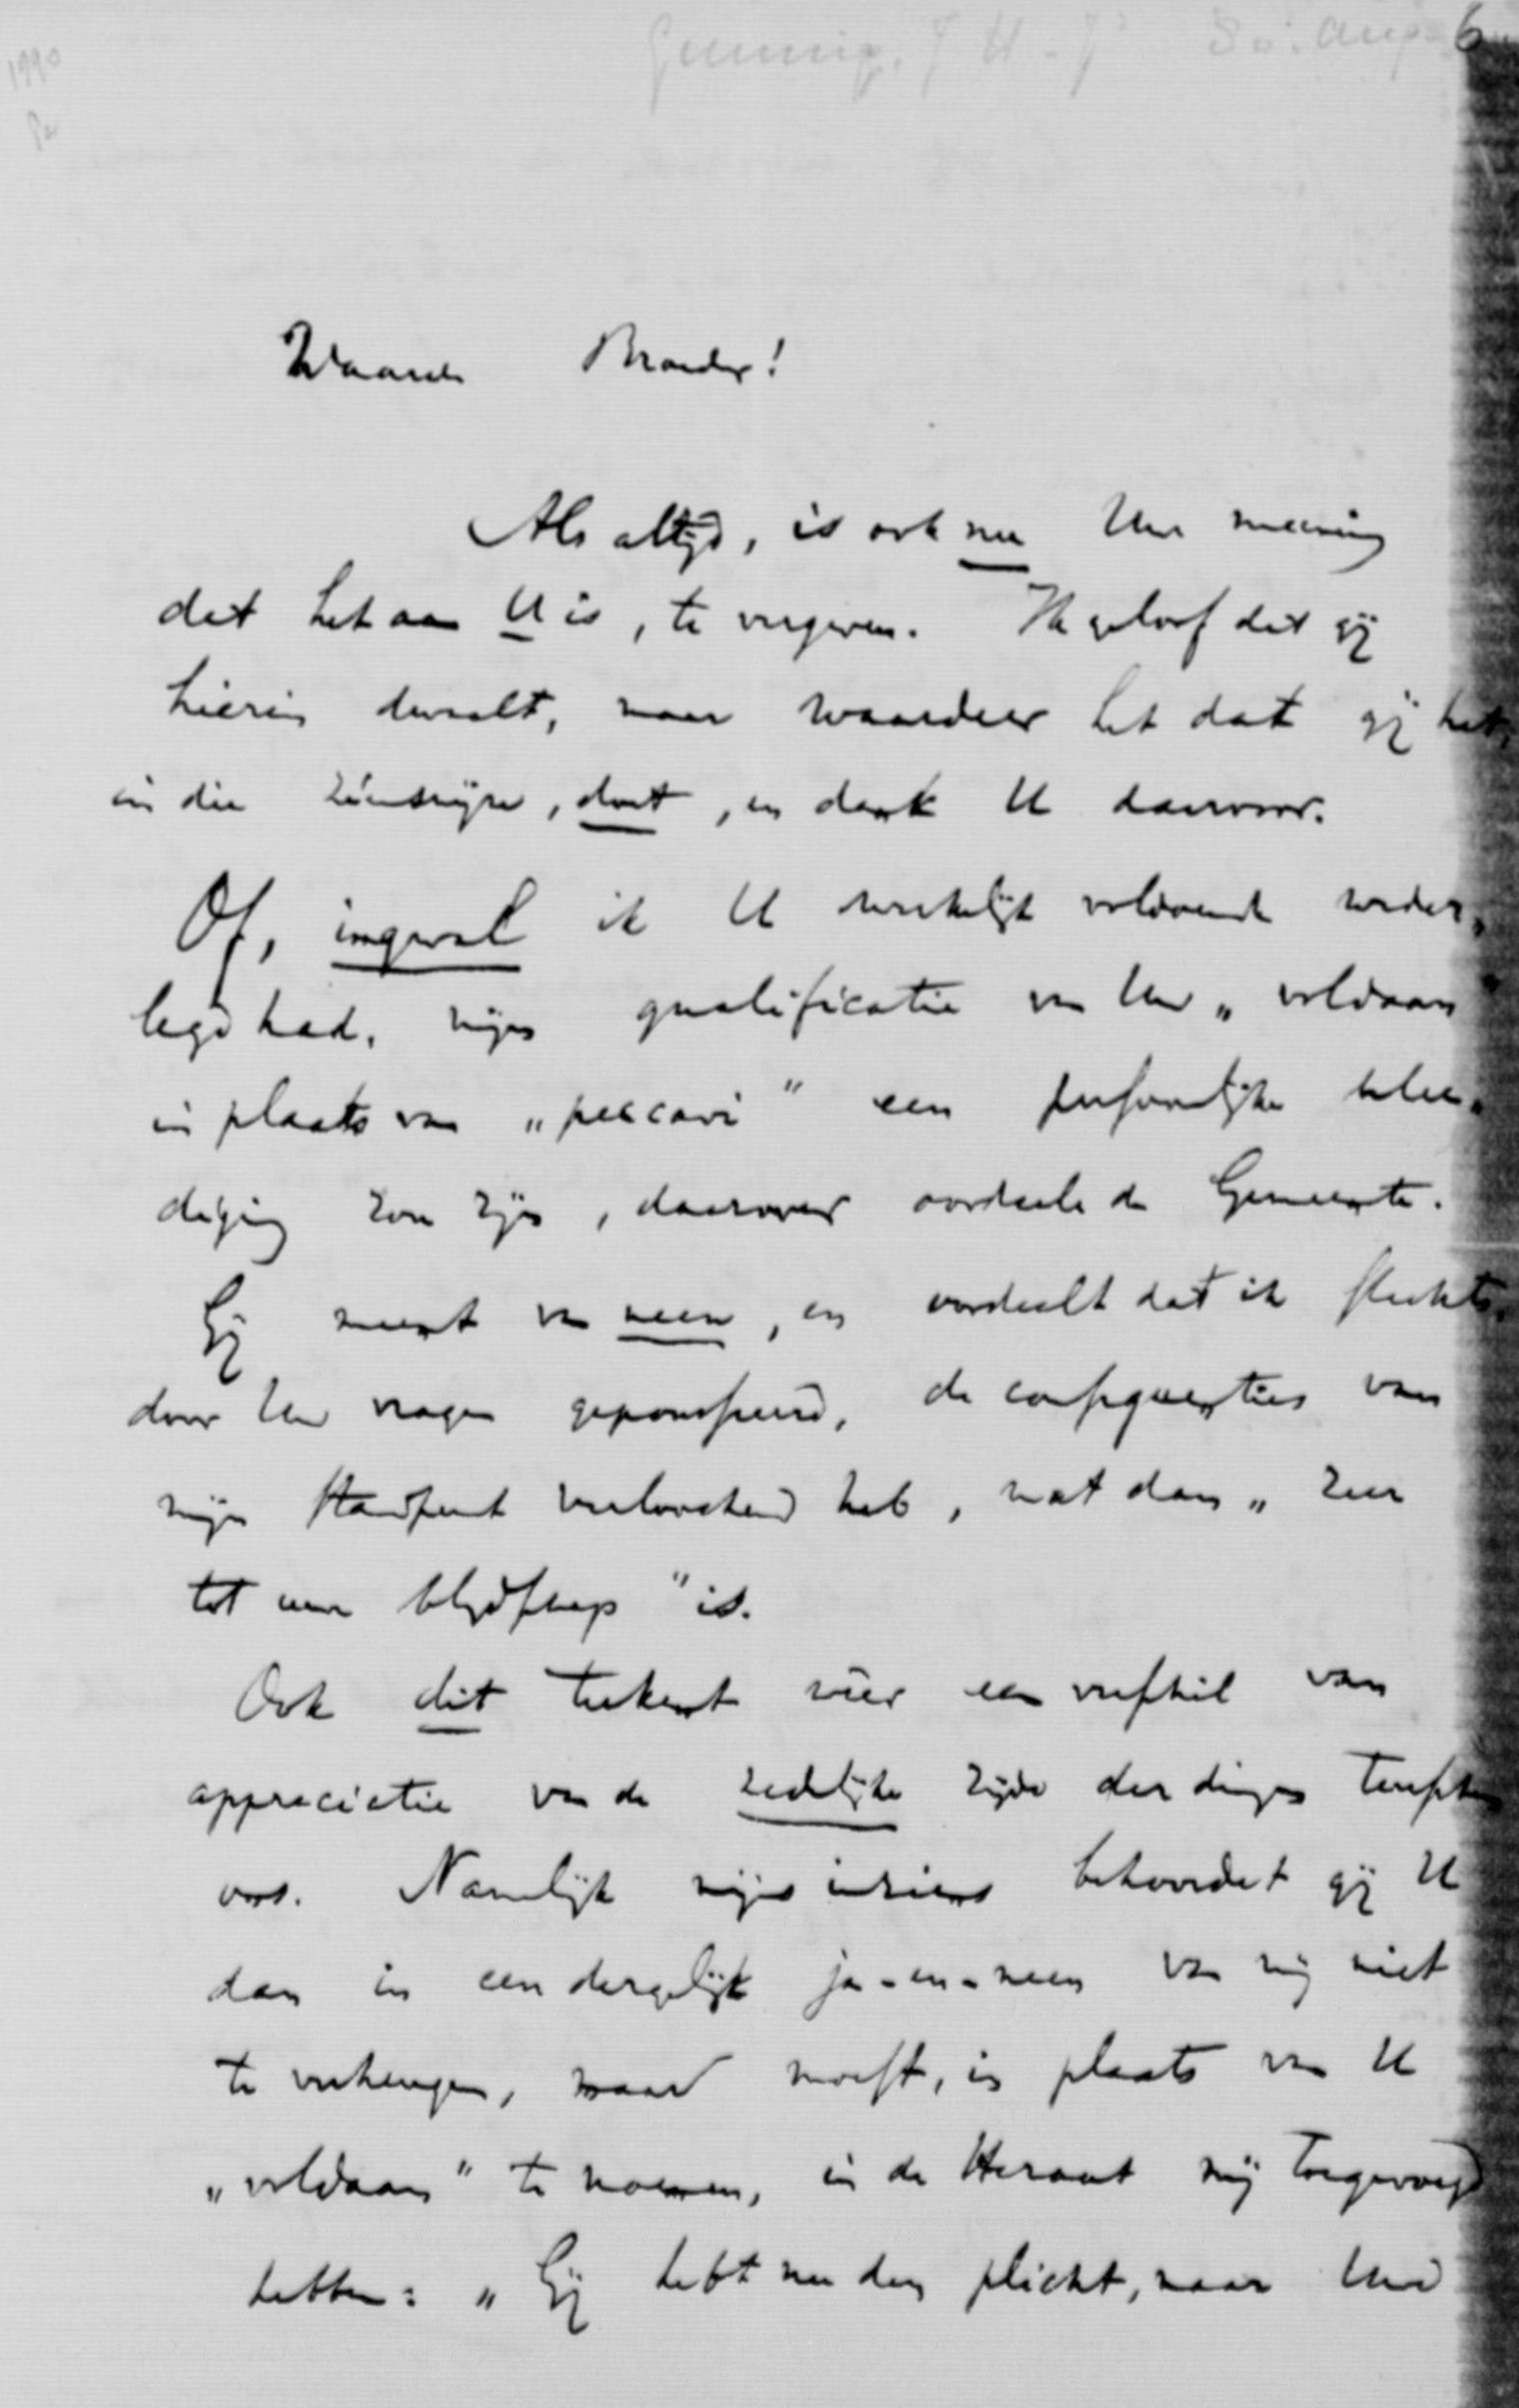 1990
Gunning, J H. Jr 30. Aug. 6
Waarde Broeder!
Als altijd, is ook nu Uw meening
dat het aan U is, te vergeven. Ik geloof dat gij
hierin dwaalt, maar waardeer het dat gij het,
in die zienswijze, doet, en dank U daarvoor.
Of, ingeval ik U werkelijk voldoende weder„
legd had, mijn qualificatie van Uw „voldaan"
in plaats van „peccavi" een persoonlijke belee„
diging zou zijn, daarover oordeele de Gemeente.
Gij meent van neen, en oordeelt dat ik slechts,
door Uw vragen geponsseerd, de consequenties van
mijn standpunt verloochend heb, wat dan „zeer
tot uwe blijdschap" is.
Ook dit teekent weer een verschil van
appreciatie van de zedelijke zijde der dingen tusschen
ons. Namelijk mijns inziens behoordet gij U
dan in een dergelijk ja-en-neen van mij niet
te verheugen, maar moest, in plaats van U
„voldaan" te noemen, in de Heraut mij toegevoegd
hebben: „Gij hebt nu den plicht, naar Uw